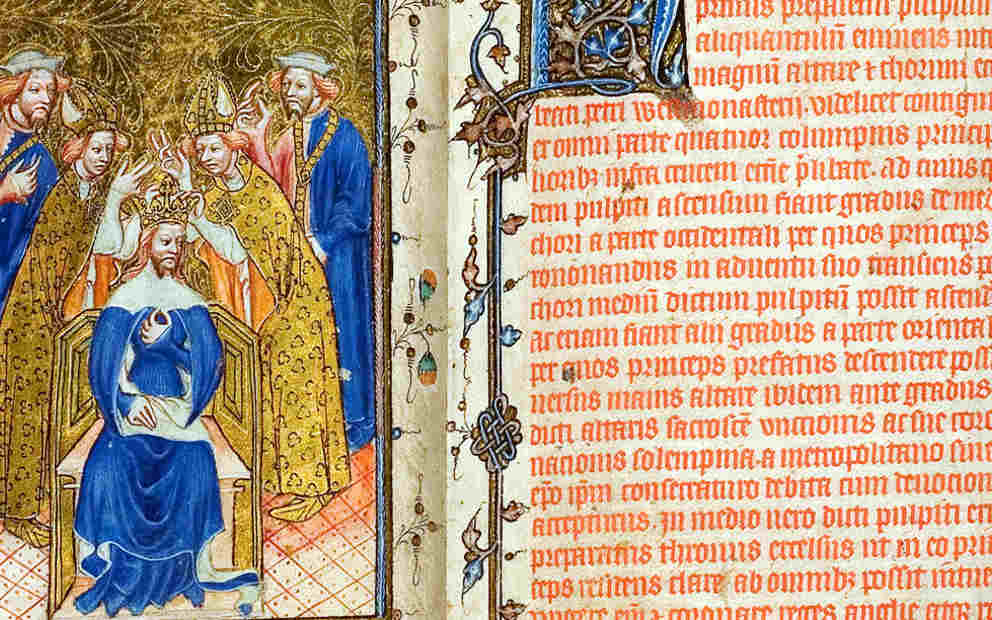 primis preparetur pulpitum
aliquantulũ eminens inter
magnũ altare ⁊ chorum ec
beati petri westmonasterii. videlicet contigui
ex omni parte quatuor columpnis princip
lioribꝫ infra crucem ecc̃e p̃libate. ad cuius q
dem pulpiti ascensum fiant gradus de med
chori a parte occidentali per quos princeps
coronandus in adventu suo transiens pe
chori mediũ dictum pulpitũ possit ascend
ac etiam fiant alii gradus a parte oriental
per quos princeps prefatus descendere poss
versus maius altare ibidem ante gradus
dicti altaris sacrosc̃e unctionis ac sue coro
nacionis solempnia. a metropolitano sive
ep̃o ip̃m consecraturo debita cum devocion
accepturus. In medio vero dicti pulpiti eri
preparatus thronus excelsus ut in eo prin
ceps residens clare ab omnibꝫ possit intue
eñ ⁊ coronare reges anglie